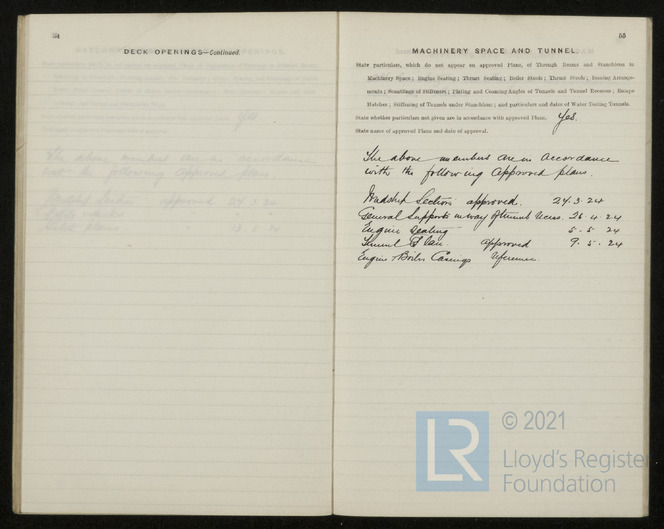 54
DECK OPENINGS—Continued.
55
MACHINERY SPACE AND TUNNEL.
State particulars, which do not appear on approved Plans, of Through Beams and Stanchions in
Machinery Space; Engine Seating; Thrust Seating; Boiler Stools; Thrust Stools; Bossing Arrange-
ments; Scantlings of Stiffeners; Plating and Coaming Angles of Tunnels and Tunnel Recesses; Escape
Hatches; Stiffening of Tunnels under Stanchions; and particulars and dates of Water Testing Tunnels.
State whether particulars not given are in accordance with approved Plans. Yes.
State name of approved Plans and date of approval.
The above members are in accordance
with the following Approved plans.
Midship Section approved. 24.3.24
General Supports in way of tunnel 26.4.24
Engine Seating 5.5.24
Tunnel Plan. approved 9.5.24
Engine & Boiler Casings reference
LR
© 2021
Lloyd's Register
Foundation